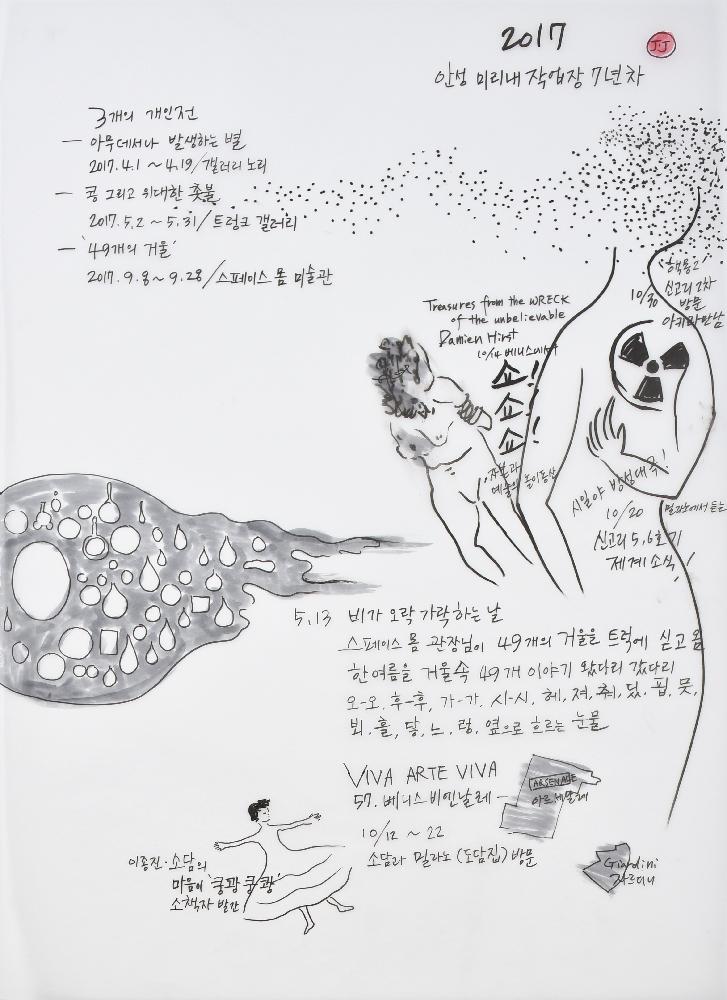 2017
J.J
안성 미리내 작업장 7년차
3개의 개인전
— 아무데서나 발생하는 별
2017.4.1 ~ 4.19/갤러리 노리
— 콩 그리고 위대한 촛불
2017.5.2 ~ 5.31/트렁크 갤러리
— '49개의 거울'
2017.9.8 ~ 9.28/스페이스 몸 미술관
'핵몽2'
10/30 신고리 2차
방문
아키라 만남
Treasures from the WRECK
of the unbelievable
Damien Hirst
10/14 베니스에서
쇼!
쇼!
쇼!
자본과
예술의 놀이동산
시일야 방성대곡!
10/20 밀라노에서 듣는
신고리 5,6호기
재계 소식!
5.13 비가 오락가락하는 날
스페이스 몸 관장님이 49개의 거울을 트럭에 싣고 옴
한여름을 거울속 49개 이야기 왔다리 갔다리
오-오, 후-후, 가-가, 시-시, 헤, 져, 쥐, 딨, 핍, 뭇,
뵈, 흘, 닿, 느, 렁, 옆으로 흐르는 눈물
VIVA ARTE VIVA
57. 베니스 비엔날레 —
ARSENALE
아르세날레
10/12 ~ 22
소담과 밀라노 (도담집) 방문
Giardini
자르디니
이종진·소담의
마음이 '쿵쾅쿵쾅'
소책자 발간